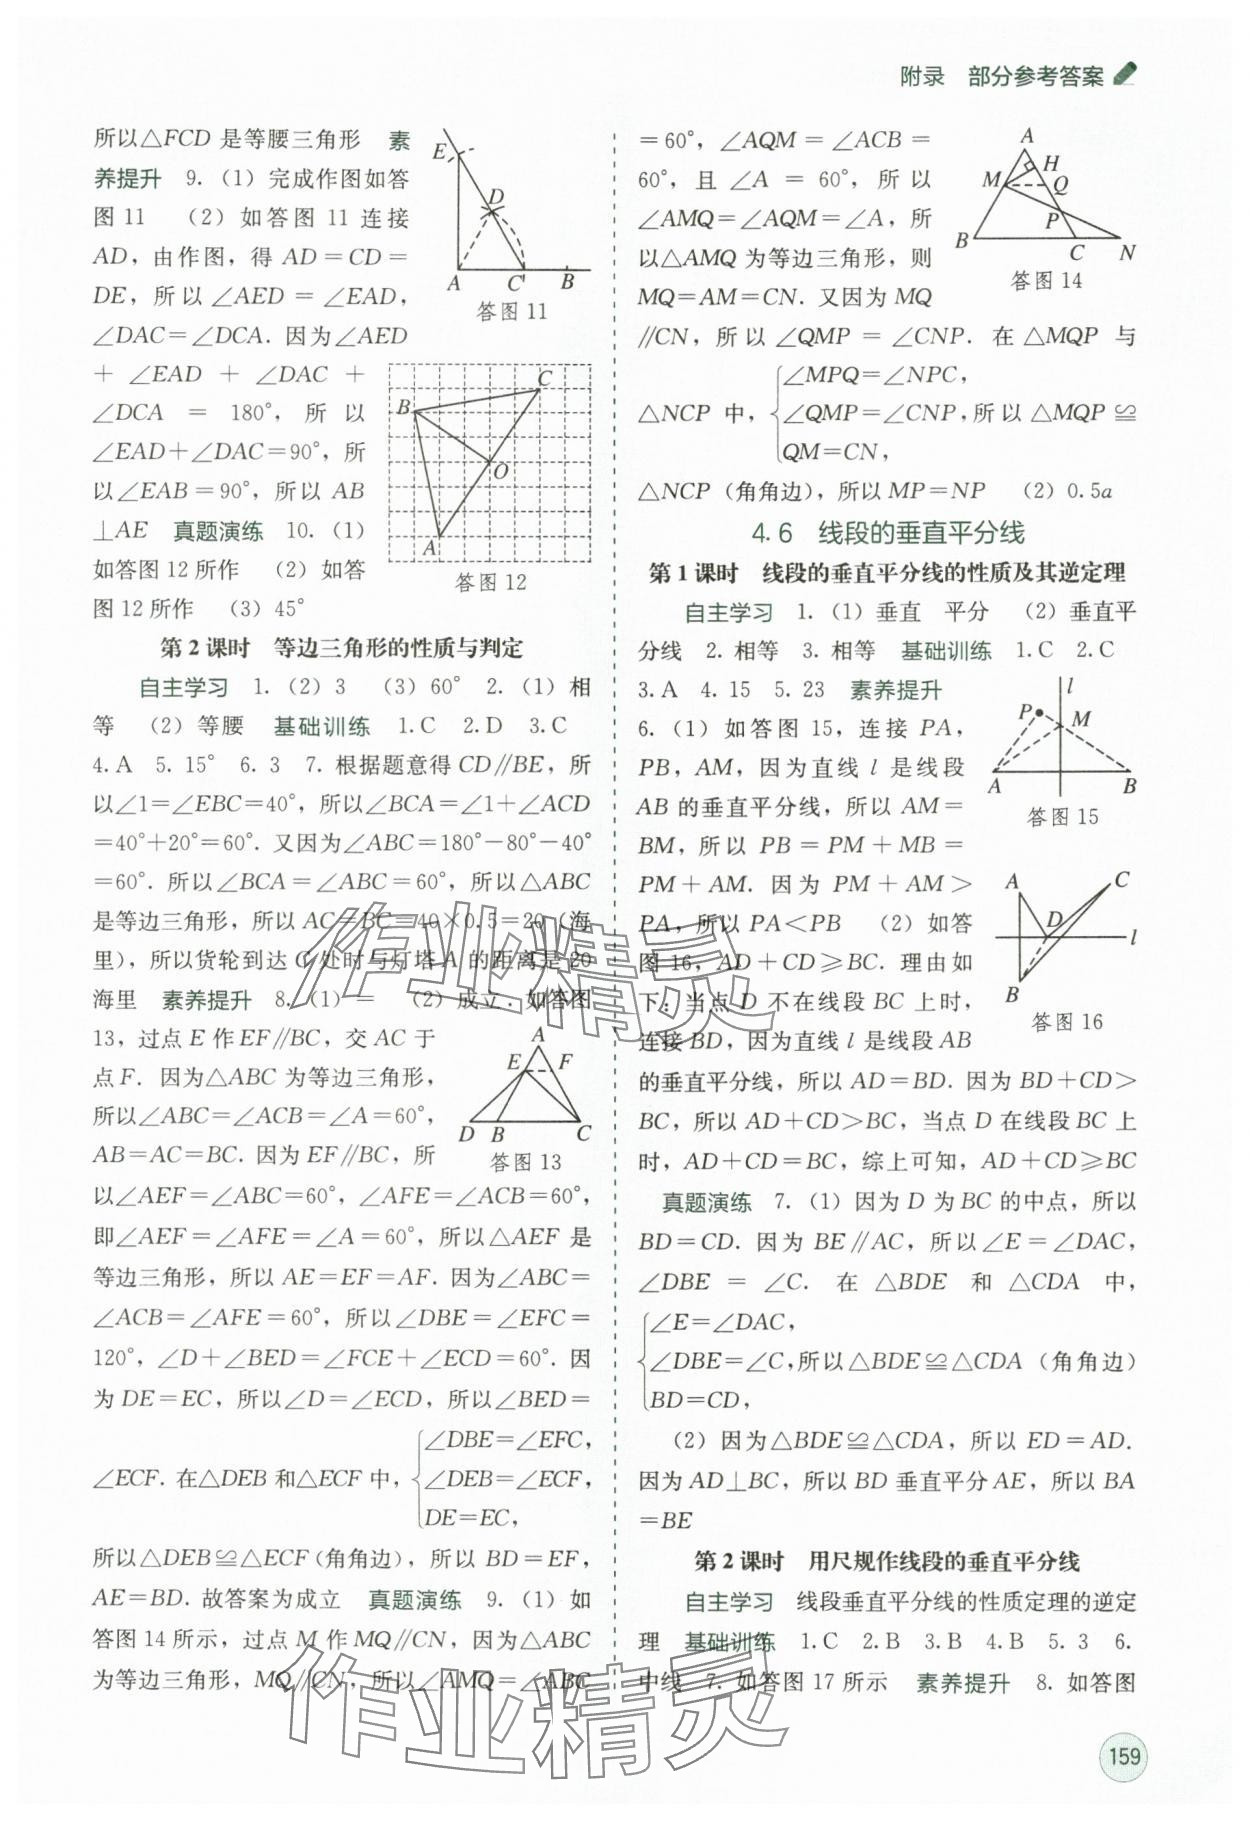 附录　部分参考答案
所以△FCD 是等腰三角形　素
养提升　9.（1）完成作图如答
图 11　（2）如答图 11 连接
AD，由作图，得 AD＝CD＝
DE，所以∠AED＝∠EAD，
∠DAC＝∠DCA. 因为∠AED
＋∠EAD＋∠DAC＋
∠DCA＝180°，所以
∠EAD＋∠DAC＝90°，所
以∠EAB＝90°，所以 AB
⊥AE　真题演练　10.（1）
如答图 12 所作　（2）如答
图 12 所作　（3）45°
E
D
A
C
B
答图 11
C
B
O
A
答图 12
第 2 课时　等边三角形的性质与判定
自主学习　1.（2）3　（3）60°　2.（1）相
等　（2）等腰　基础训练　1. C　2. D　3. C
4. A　5. 15°　6. 3　7. 根据题意得 CD∥BE，所
以∠1＝∠EBC＝40°，所以∠BCA＝∠1＋∠ACD
＝40°＋20°＝60°. 又因为∠ABC＝180°－80°－40°
＝60°. 所以∠BCA＝∠ABC＝60°，所以△ABC
是等边三角形，所以 AC＝BC＝40×0.5＝20（海
里），所以货轮到达 C 处时与灯塔 A 的距离是 20
海里　素养提升　8.（1）＝　（2）成立. 如答图
13，过点 E 作 EF∥BC，交 AC 于
点 F. 因为△ABC 为等边三角形，
所以∠ABC＝∠ACB＝∠A＝60°，
AB＝AC＝BC. 因为 EF∥BC，所
以∠AEF＝∠ABC＝60°，∠AFE＝∠ACB＝60°，
即∠AEF＝∠AFE＝∠A＝60°，所以△AEF 是
等边三角形，所以 AE＝EF＝AF. 因为∠ABC＝
∠ACB＝∠AFE＝60°，所以∠DBE＝∠EFC＝
120°，∠D＋∠BED＝∠FCE＋∠ECD＝60°. 因
为 DE＝EC，所以∠D＝∠ECD，所以∠BED＝
∠ECF. 在△DEB 和△ECF 中，{∠DBE＝∠EFC，
∠DEB＝∠ECF，
DE＝EC，
所以△DEB≌△ECF（角角边），所以 BD＝EF，
AE＝BD. 故答案为成立　真题演练　9.（1）如
答图 14 所示，过点 M 作 MQ∥CN，因为△ABC
为等边三角形，MQ∥CN，所以∠AMQ＝∠ABC
A
E
F
D
B
C
答图 13
＝60°，∠AQM＝∠ACB＝
60°，且∠A＝60°，所以
∠AMQ＝∠AQM＝∠A，所
以△AMQ 为等边三角形，则
MQ＝AM＝CN. 又因为 MQ
∥CN，所以∠QMP＝∠CNP. 在△MQP 与
△NCP 中，{∠MPQ＝∠NPC，
∠QMP＝∠CNP，所以△MQP≌
QM＝CN，
△NCP（角角边），所以 MP＝NP　（2）0.5a
A
H
M
Q
P
B
C
N
答图 14
4.6　线段的垂直平分线
第 1 课时　线段的垂直平分线的性质及其逆定理
自主学习　1.（1）垂直　平分　（2）垂直平
分线　2. 相等　3. 相等　基础训练　1. C　2. C
3. A　4. 15　5. 23　素养提升
6.（1）如答图 15，连接 PA，
PB，AM，因为直线 l 是线段
AB 的垂直平分线，所以 AM＝
BM，所以 PB＝PM＋MB＝
PM＋AM. 因为 PM＋AM＞
PA，所以 PA＜PB　（2）如答
图 16，AD＋CD⩾BC. 理由如
下：当点 D 不在线段 BC 上时，
连接 BD，因为直线 l 是线段 AB
的垂直平分线，所以 AD＝BD. 因为 BD＋CD＞
BC，所以 AD＋CD＞BC，当点 D 在线段 BC 上
时，AD＋CD＝BC，综上可知，AD＋CD⩾BC
l
P
M
A
B
答图 15
A
C
D
l
B
答图 16
真题演练　7.（1）因为 D 为 BC 的中点，所以
BD＝CD. 因为 BE∥AC，所以∠E＝∠DAC，
∠DBE＝∠C. 在△BDE 和△CDA 中，
{∠E＝∠DAC，
∠DBE＝∠C，所以△BDE≌△CDA（角角边）
BD＝CD，
（2）因为△BDE≌△CDA，所以 ED＝AD.
因为 AD⊥BC，所以 BD 垂直平分 AE，所以 BA
＝BE
第 2 课时　用尺规作线段的垂直平分线
自主学习　线段垂直平分线的性质定理的逆定
理　基础训练　1. C　2. B　3. B　4. B　5. 3　6.
中线　7. 如答图 17 所示　素养提升　8. 如答图
作业精灵
作业精灵
159